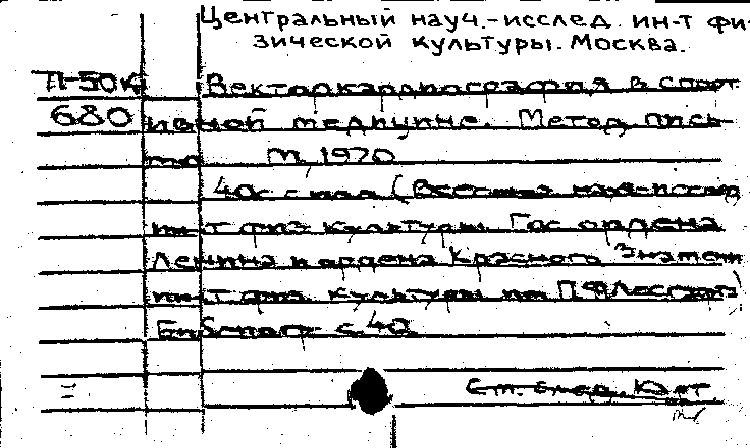 Центральный науч.-исслед. ин-т фи-
зической культуры. Москва.
П-50к Векторкардиография в спорт
680 ивной медицине. Метод. пись-
мо М., 1970
40с. с ил. (Всесоюзн. науч-исслед
ин-т физ культуры. Гос ордена
Ленина и ордена Красного Знамени
ин-т физ. культуры им П.Ф Лесгафта)
Библиогр с. 40